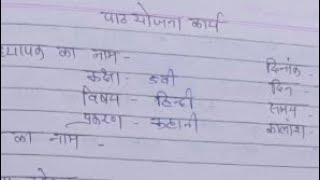 पाठ योजना कार्य
ध्यापक का नाम - दिनांक -
कक्षा - 8वी दिन -
विषय - हिन्दी समय -
प्रकरण - कहानी कालांश -
का नाम -